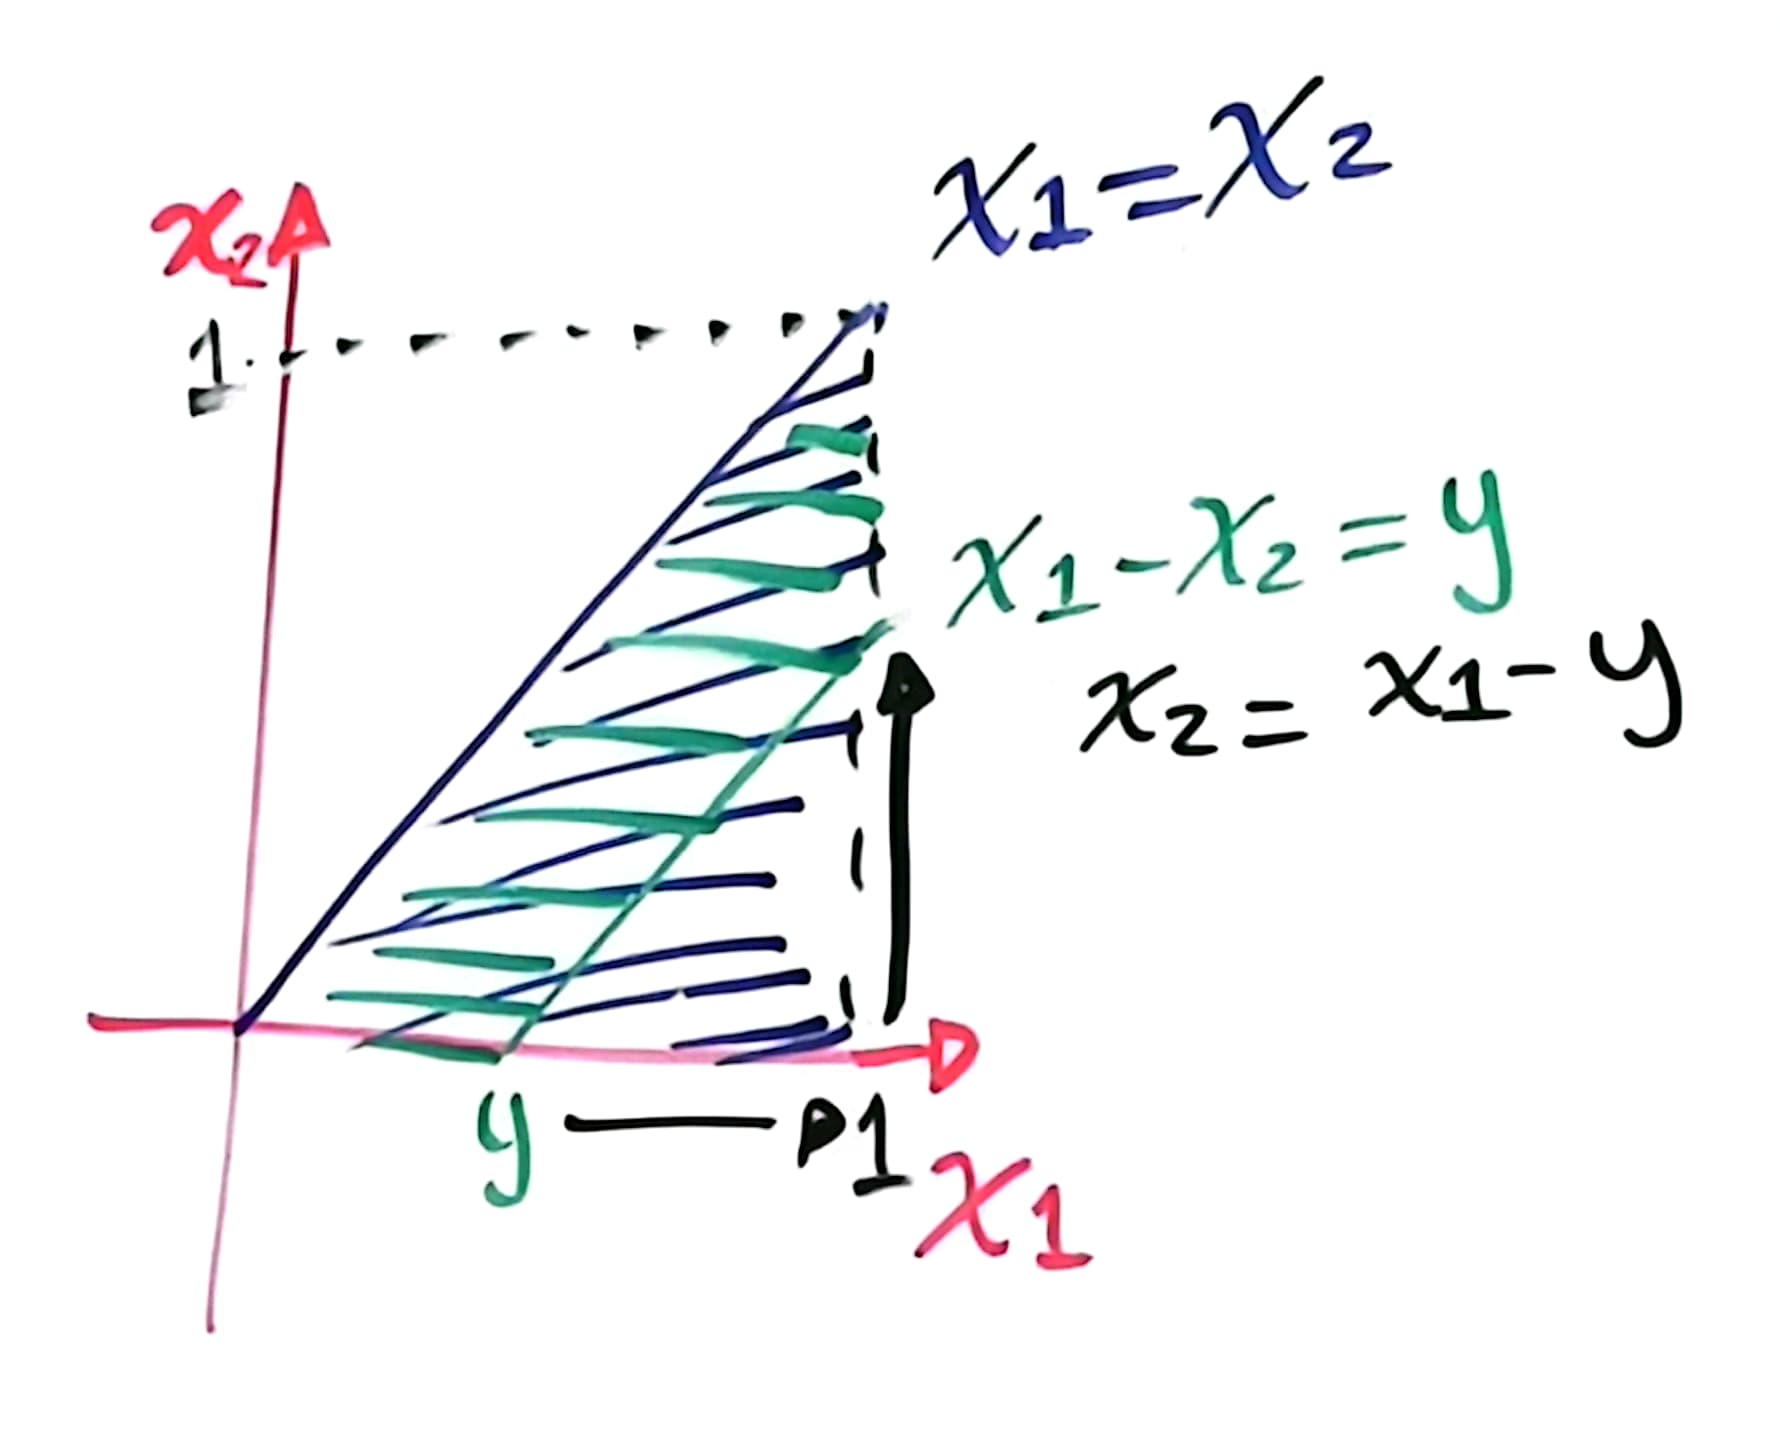 x₁=x₂
x₂
1
x₁-x₂=y
x₂=x₁-y
y
1
x₁